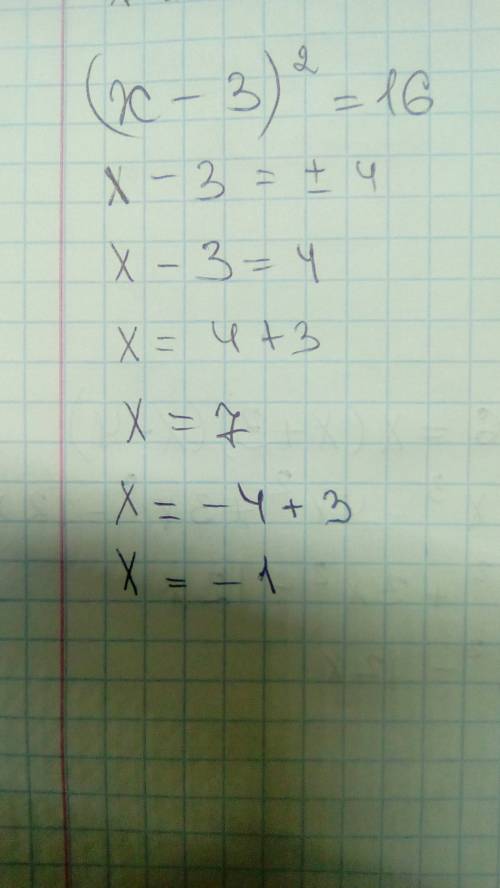 (x - 3)² = 16
x - 3 = ± 4
x - 3 = 4
x = 4 + 3
x = 7
x = - 4 + 3
x = - 1